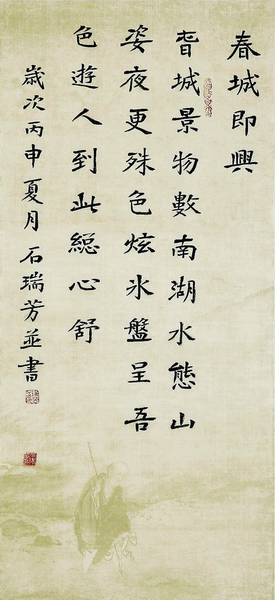 春城即興
旾城景物數南湖水態山
姿夜更殊色炫氷盤呈吾
色遊人到此緫心舒
歲次丙申夏月石瑞芳並書